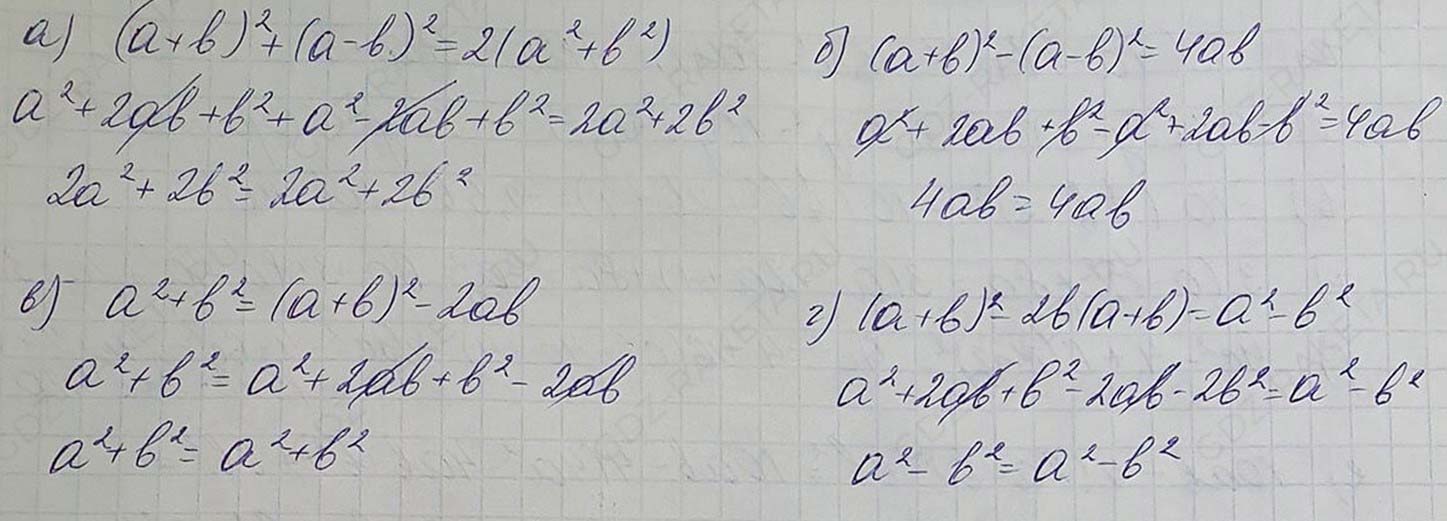 а) (a+b)²+(a-b)²=2(a²+b²)
a²+2ab+b²+a²-2ab+b²=2a²+2b²
2a²+2b²=2a²+2b²
б) (a+b)²-(a-b)²=4ab
a²+2ab+b²-a²+2ab-b²=4ab
4ab=4ab
в) a²+b²=(a+b)²-2ab
a²+b²=a²+2ab+b²-2ab
a²+b²=a²+b²
г) (a+b)²-2b(a+b)=a²-b²
a²+2ab+b²-2ab-2b²=a²-b²
a²-b²=a²-b²